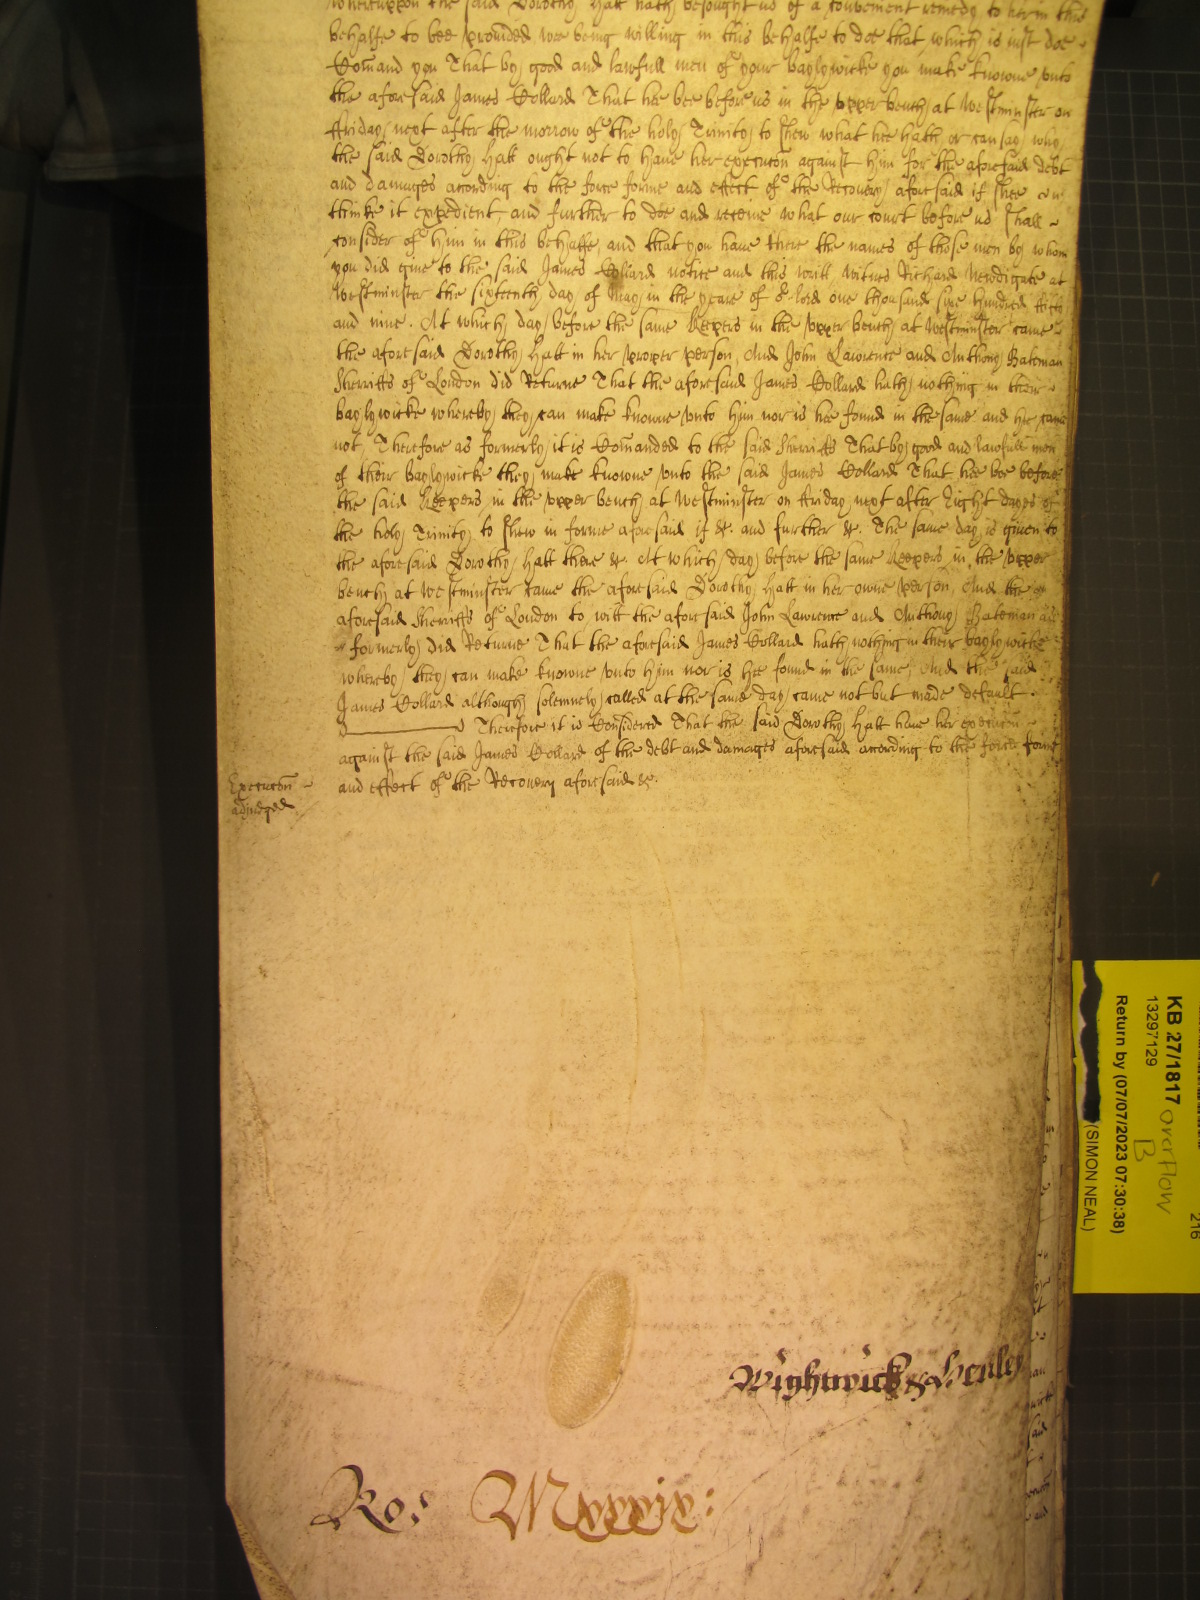 whereuppon the said Dorothy Hall hath besought us of a convenient remedy to her in this
behalfe to bee provided wee being willing in this behalfe to doe that which is just doe
Comand you That by good and lawfull men of your baylywicke you make knowne unto
the aforesaid James Collard That hee bee before us in the upper bench at Westminster on
ffriday next after the morrow of the holy Trinity to shew what hee hath or can say why
the said Dorothy Hall ought not to have her execucon against him for the aforesaid debt
and damages according to the force forme and effect of the Recovery aforesaid if shee
thinke it expedient and further to doe and receive what our court before us shall
consider of him in this behalfe and that you have there the names of those men by whom
you did give to the said James Collard notice and this writt witnes Richard Newdigate at
Westminster the sixteenth day of May in the yeare of or lord one thousand sixe hundred fifty
and nine . At which day before the same Keepers in the upper bench at Westminster came
the aforesaid Dorothy Hall in her proper person And John Lawrence and Anthony Bateman
Sherriffs of London did Returne That the aforesaid James Collard hath nothing in their
baylywicke whereby they can make knowne unto him nor is hee found in the same and hee came
not , Therefore as formerly it is Comanded to the said Sherriffs That by good and lawfull men
of their baylywicke they make knowne unto the said James Collard That hee bee before
the said Keepers in the upper bench at Westminster on ffriday next after Eight dayes of
the holy Trinity to shew in forme aforesaid if &c. and further &c. The same day is given to
the aforesaid Dorothy Hall there &c. At which day before the same Keepers in the upper
bench at Westminster came the aforesaid Dorothy Hall in her owne person , And the
aforesaid Sherriffs of London to witt the aforesaid John Lawrence and Anthony Bateman as
formerly did Returne That the aforesaid James Collard hath nothing in their baylywicke
whereby they can make knowne unto him nor is hee found in the same , And the said
James Collard although solemnely called at the same day came not but made default .
Therefore it is Considered That the said Dorothy Hall have her execucon
against the said James Collard of the debt and damages aforesaid according to the force forme
and effect of the Recovery aforesaid &c.
Execucon
adjudged
Wightwick & Henley
Ro. Mxxxix:
KB 27/1817 overflow B
13297129
Return by (07/07/2023 07:30:38)
(SIMON NEAL)
216